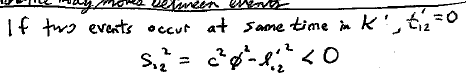 may moves between events
If two events occur at same time in K', t'₁₂=0
S₁₂² = c²0² - l'₁₂² < 0